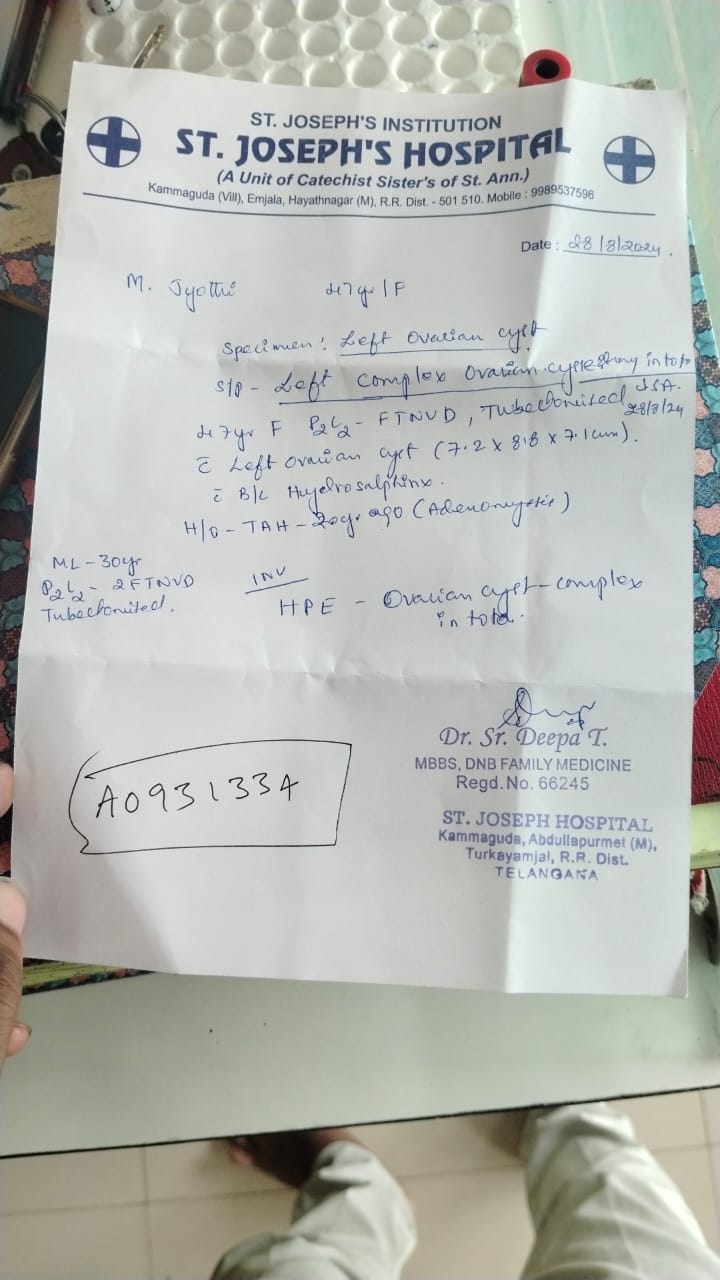 ST. JOSEPH'S INSTITUTION
ST. JOSEPH'S HOSPITAL
(A Unit of Catechist Sister's of St. Ann.)
Kammaguda (Vill), Emjala, Hayathnagar (M), R.R. Dist. - 501 510. Mobile : 9989537596
Date : 28/8/2024.
M. Jyothi 47yr/F
Specimen: Left Ovarian cyst
S/p - Left Complex Ovarian in toto
47yr F P2L2 - FTNVD, Tubectomised 28/8/24
c̄ Left Ovarian cyst (7.2 x 8.8 x 7.1cm).
c̄ B/L Hydrosalphinx.
H/O - TAH - 20yr ago (Adenomyosis)
ML - 30yr
P2L2 - 2FTNVD
Tubectomised.
INV
HPE - Ovarian cyst - complex
in toto.
Dr. Sr. Deepa T.
MBBS, DNB FAMILY MEDICINE
Regd. No. 66245
ST. JOSEPH HOSPITAL
Kammaguda, Abdullapurmet (M),
Turkayamjal, R.R. Dist.
TELANGANA
A0931334